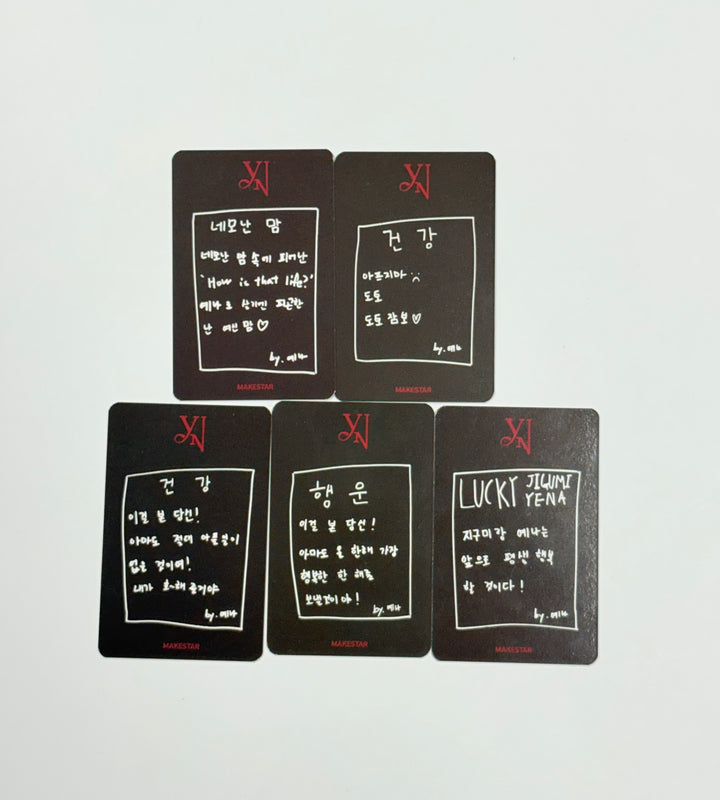 YN
네모난 맘
네모난 맘 속에 피어난
'How is that life?'
예나로 상기된 피곤한
난 예민 맘♡
by. 예나
MAKESTAR
YN
건강
아프지마 :(
도토
도토 잠보♡
by. 예나
MAKESTAR
YN
건강
이걸 본 당신!
아마도 절대 아플일이
없을 것이여!
내가 호~해줄거야
by. 예나
MAKESTAR
YN
행운
이걸 본 당신!
아마도 올 한해 가장
행복한 한 해를
보낼것이야!
by. 예나
MAKESTAR
YN
LUCKY JIGUMI
YENA
지구미랑 예나는
앞으로 평생 행복
할 것이다!
by. 예나
MAKESTAR